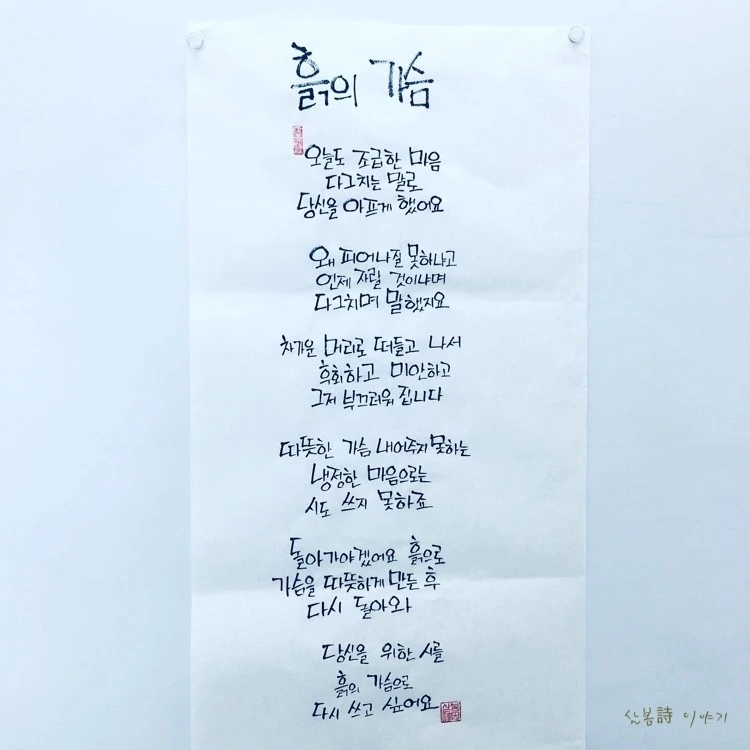 흙의 가슴
오늘도 조급한 마음
다그치는 말로
당신을 아프게 했어요
왜 피어나질 못하냐고
언제 자랄 것이냐며
다그치며 말했지요
차가운 머리로 떠들고 나서
후회하고 미안하고
그저 부끄러워 집니다
따뜻한 가슴 내어주지 못하는
냉정한 마음으로는
시도 쓰지 못하죠
돌아가야겠어요 흙으로
가슴을 따뜻하게 만든 후
다시 돌아와
당신을 위한 시를
흙의 가슴으로
다시 쓰고 싶어요
산봄詩 이야기